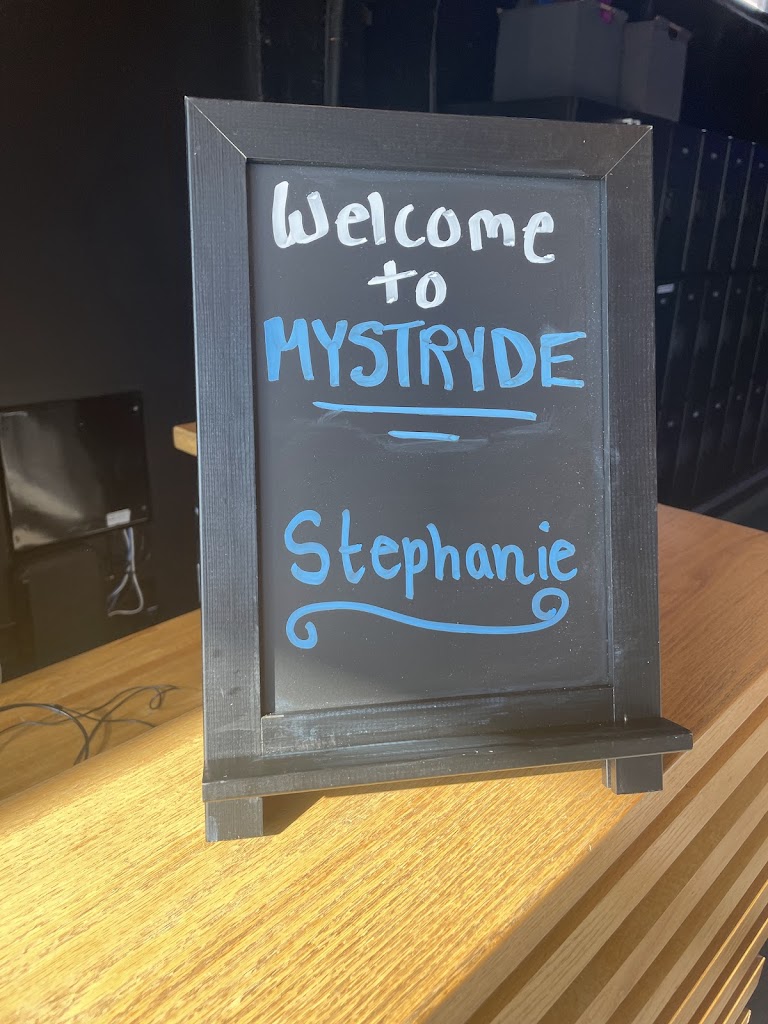 Welcome
to
MYSTRYDE
Stephanie